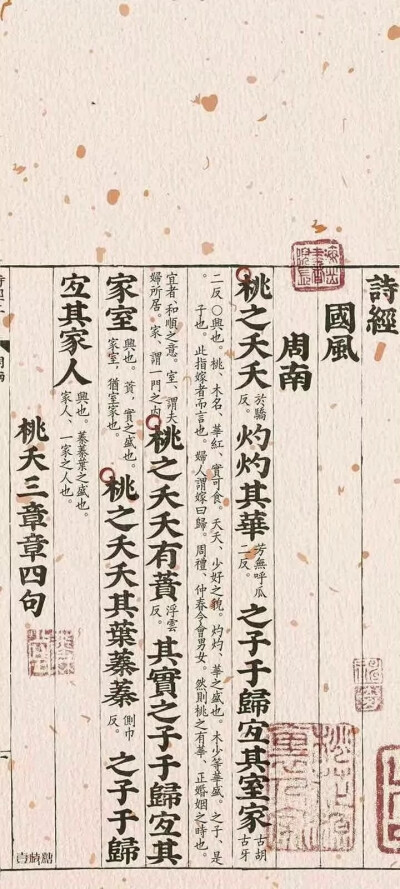 詩經
國風
周南
桃之夭夭於驕反。灼灼其華芳無呼瓜二反。之子于歸宐其室家古胡古牙
二反。○興也。桃、木名、華紅、實可食。夭夭、少好之貌。灼灼、華之盛也。木少等華盛。之子、是
子也。此指嫁者而言也。婦人謂嫁曰歸。周禮、仲春令會男女。然則桃之有華、正婚姻之時也。
宜者、和順之意。室、謂夫婦所居。家、謂一門之内桃之夭夭有蕡浮雲反。其實之子于歸宐其
家室興也。蕡、實之盛也。家室、猶室家也。桃之夭夭其葉蓁蓁側巾反。之子于歸
宐其家人興也。蓁蓁葉之盛也。家人、一家之人也。
桃夭三章章四句